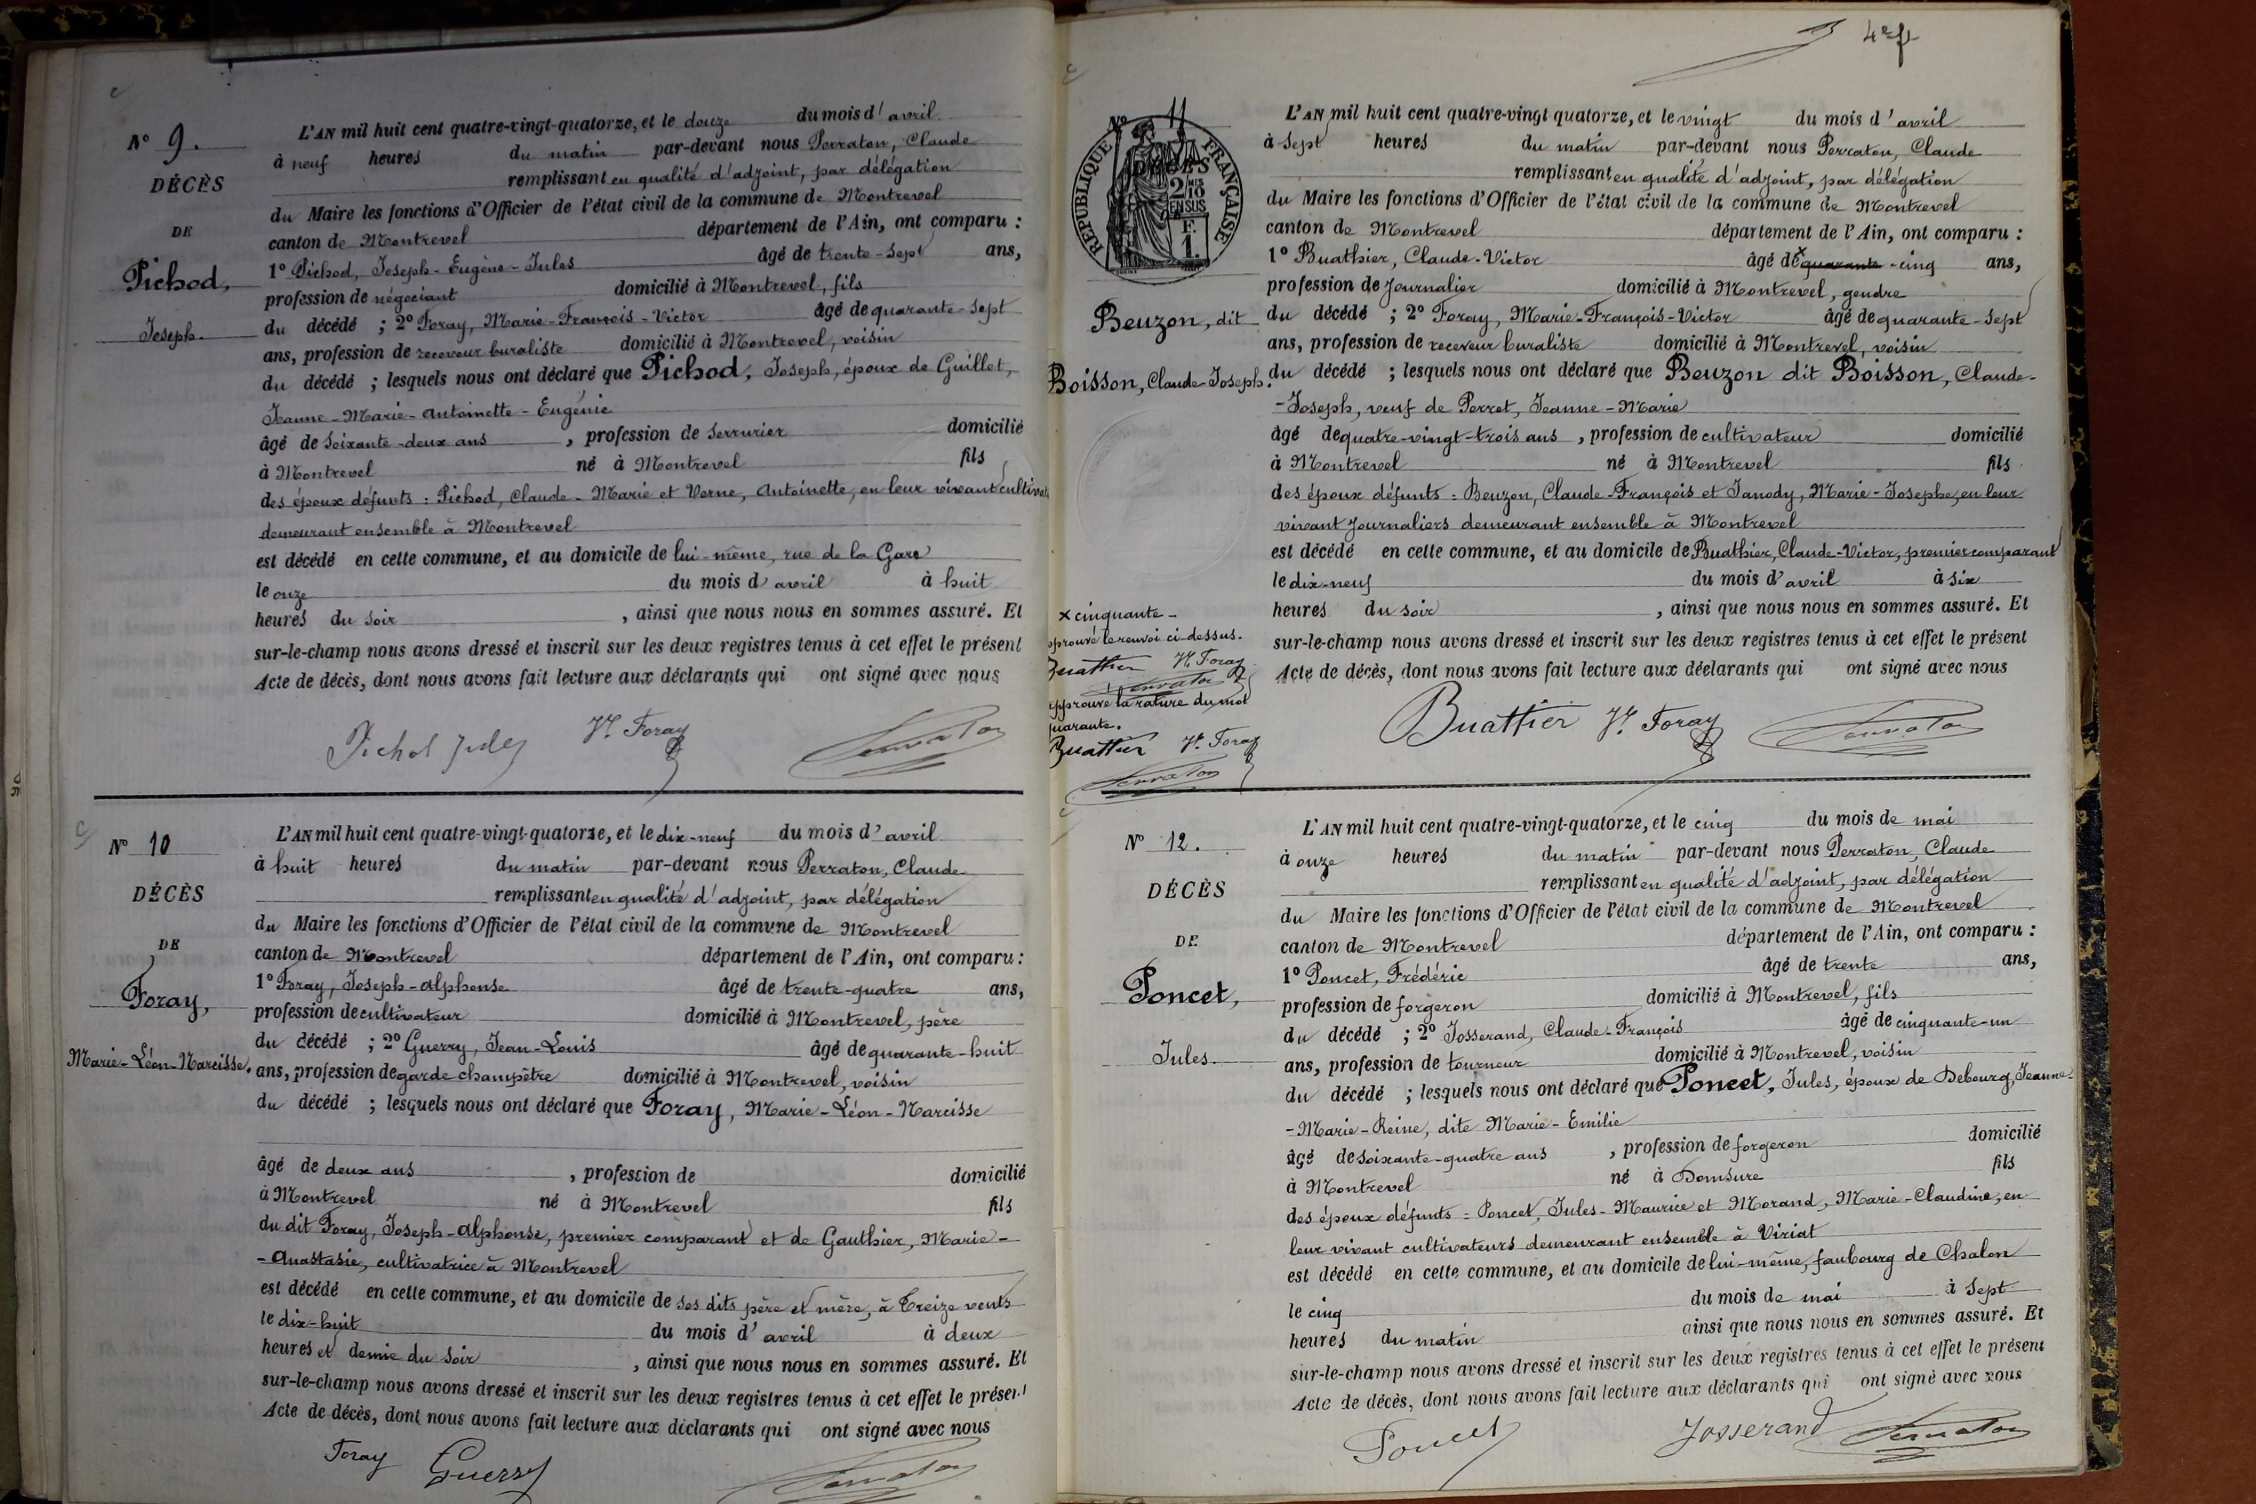 N° 9.
DÉCÈS
DE
Pichod,
Joseph.
L'AN mil huit cent quatre-vingt-quatorze, et le douze du mois d'avril
à neuf heures du matin par-devant nous Perraton, Claude
remplissant en qualité d'adjoint, par délégation
du Maire les fonctions d'Officier de l'état civil de la commune de Montrevel
canton de Montrevel département de l'Ain, ont comparu :
1° Pichod, Joseph-Eugène-Jules âgé de trente-sept ans,
profession de négociant domicilié à Montrevel, fils
du décédé ; 2° Foray, Marie-François-Victor âgé de quarante-sept
ans, profession de receveur buraliste domicilié à Montrevel, voisin
du décédé ; lesquels nous ont déclaré que Pichod, Joseph, époux de Guillet,
Jeanne-Marie-Antoinette-Eugénie
âgé de soixante-deux ans , profession de serrurier domicilié
à Montrevel né à Montrevel fils
des époux défunts : Pichod, Claude-Marie et Verne, Antoinette, en leur vivant cultivat
demeurant ensemble à Montrevel
est décédé en cette commune, et au domicile de lui-même, rue de la Gare
le onze du mois d'avril à huit
heures du soir , ainsi que nous nous en sommes assuré. Et
sur-le-champ nous avons dressé et inscrit sur les deux registres tenus à cet effet le présent
Acte de décès, dont nous avons fait lecture aux déclarants qui ont signé avec nous
Pichod Jules Vr Foray Perraton
N° 10
DÉCÈS
DE
Foray,
Marie-Léon-Narcisse.
L'AN mil huit cent quatre-vingt-quatorze, et le dix-neuf du mois d'avril
à huit heures du matin par-devant nous Perraton, Claude
remplissant en qualité d'adjoint, par délégation
du Maire les fonctions d'Officier de l'état civil de la commune de Montrevel
canton de Montrevel département de l'Ain, ont comparu :
1° Foray, Joseph-Alphonse âgé de trente-quatre ans,
profession de cultivateur domicilié à Montrevel, père
du décédé ; 2° Guerry, Jean-Louis âgé de quarante-huit
ans, profession de garde champêtre domicilié à Montrevel, voisin
du décédé ; lesquels nous ont déclaré que Foray, Marie-Léon-Narcisse
âgé de deux ans , profession de domicilié
à Montrevel né à Montrevel fils
du dit Foray, Joseph-Alphonse, premier comparant et de Gauthier, Marie-
-Anastasie, cultivatrice à Montrevel
est décédé en cette commune, et au domicile de ses dits père et mère, à Treize vents
le dix-huit du mois d'avril à deux
heures et demie du soir , ainsi que nous nous en sommes assuré. Et
sur-le-champ nous avons dressé et inscrit sur les deux registres tenus à cet effet le présent
Acte de décès, dont nous avons fait lecture aux déclarants qui ont signé avec nous
Foray Guerry Perraton
4e f
N° 11
RÉPUBLIQUE FRANÇAISE
2/10 EN SUS
F. 1.
Beuzon, dit
Boisson, Claude-Joseph.
L'AN mil huit cent quatre-vingt quatorze, et le vingt du mois d'avril
à sept heures du matin par-devant nous Perraton, Claude
remplissant en qualité d'adjoint, par délégation
du Maire les fonctions d'Officier de l'état civil de la commune de Montrevel
canton de Montrevel département de l'Ain, ont comparu :
1° Buathier, Claude-Victor âgé de x quarante-cinq ans,
profession de journalier domicilié à Montrevel, gendre
du décédé ; 2° Foray, Marie-François-Victor âgé de quarante-sept
ans, profession de receveur buraliste domicilié à Montrevel, voisin
du décédé ; lesquels nous ont déclaré que Beuzon dit Boisson, Claude-
-Joseph, veuf de Perret, Jeanne-Marie
âgé de quatre-vingt-trois ans , profession de cultivateur domicilié
à Montrevel né à Montrevel fils
des époux défunts : Beuzon, Claude-François et Janody, Marie-Josephe, en leur
vivant journaliers demeurant ensemble à Montrevel
est décédé en cette commune, et au domicile de Buathier, Claude-Victor, premier comparant
le dix-neuf du mois d'avril à six
heures du soir , ainsi que nous nous en sommes assuré. Et
sur-le-champ nous avons dressé et inscrit sur les deux registres tenus à cet effet le présent
Acte de décès, dont nous avons fait lecture aux déclarants qui ont signé avec nous
Buathier Vr Foray Perraton
x cinquante-
pprouvé le renvoi ci-dessus.
Buathier Vr Foray
Perraton
approuvé la rature du mot
quarante.
Buathier Vr Foray
Perraton
N° 12.
DÉCÈS
DE
Poncet,
Jules.
L'AN mil huit cent quatre-vingt-quatorze, et le cinq du mois de mai
à onze heures du matin par-devant nous Perraton, Claude
remplissant en qualité d'adjoint, par délégation
du Maire les fonctions d'Officier de l'état civil de la commune de Montrevel
canton de Montrevel département de l'Ain, ont comparu :
1° Poncet, Frédéric âgé de trente ans,
profession de forgeron domicilié à Montrevel, fils
du décédé ; 2° Josserand, Claude-François âgé de cinquante-un
ans, profession de tourneur domicilié à Montrevel, voisin
du décédé ; lesquels nous ont déclaré que Poncet, Jules, époux de Debourg, Jeanne-
-Marie-Reine, dite Marie-Emilie
âgé de soixante-quatre ans , profession de forgeron domicilié
à Montrevel né à Domsure fils
des époux défunts : Poncet, Jules-Maurice et Morand, Marie-Claudine, en
leur vivant cultivateurs demeurant ensemble à Viriat
est décédé en cette commune, et au domicile de lui-même, faubourg de Chalon
le cinq du mois de mai à sept
heures du matin ainsi que nous nous en sommes assuré. Et
sur-le-champ nous avons dressé et inscrit sur les deux registres tenus à cet effet le présent
Acte de décès, dont nous avons fait lecture aux déclarants qui ont signé avec nous
Poncet Josserand Perraton